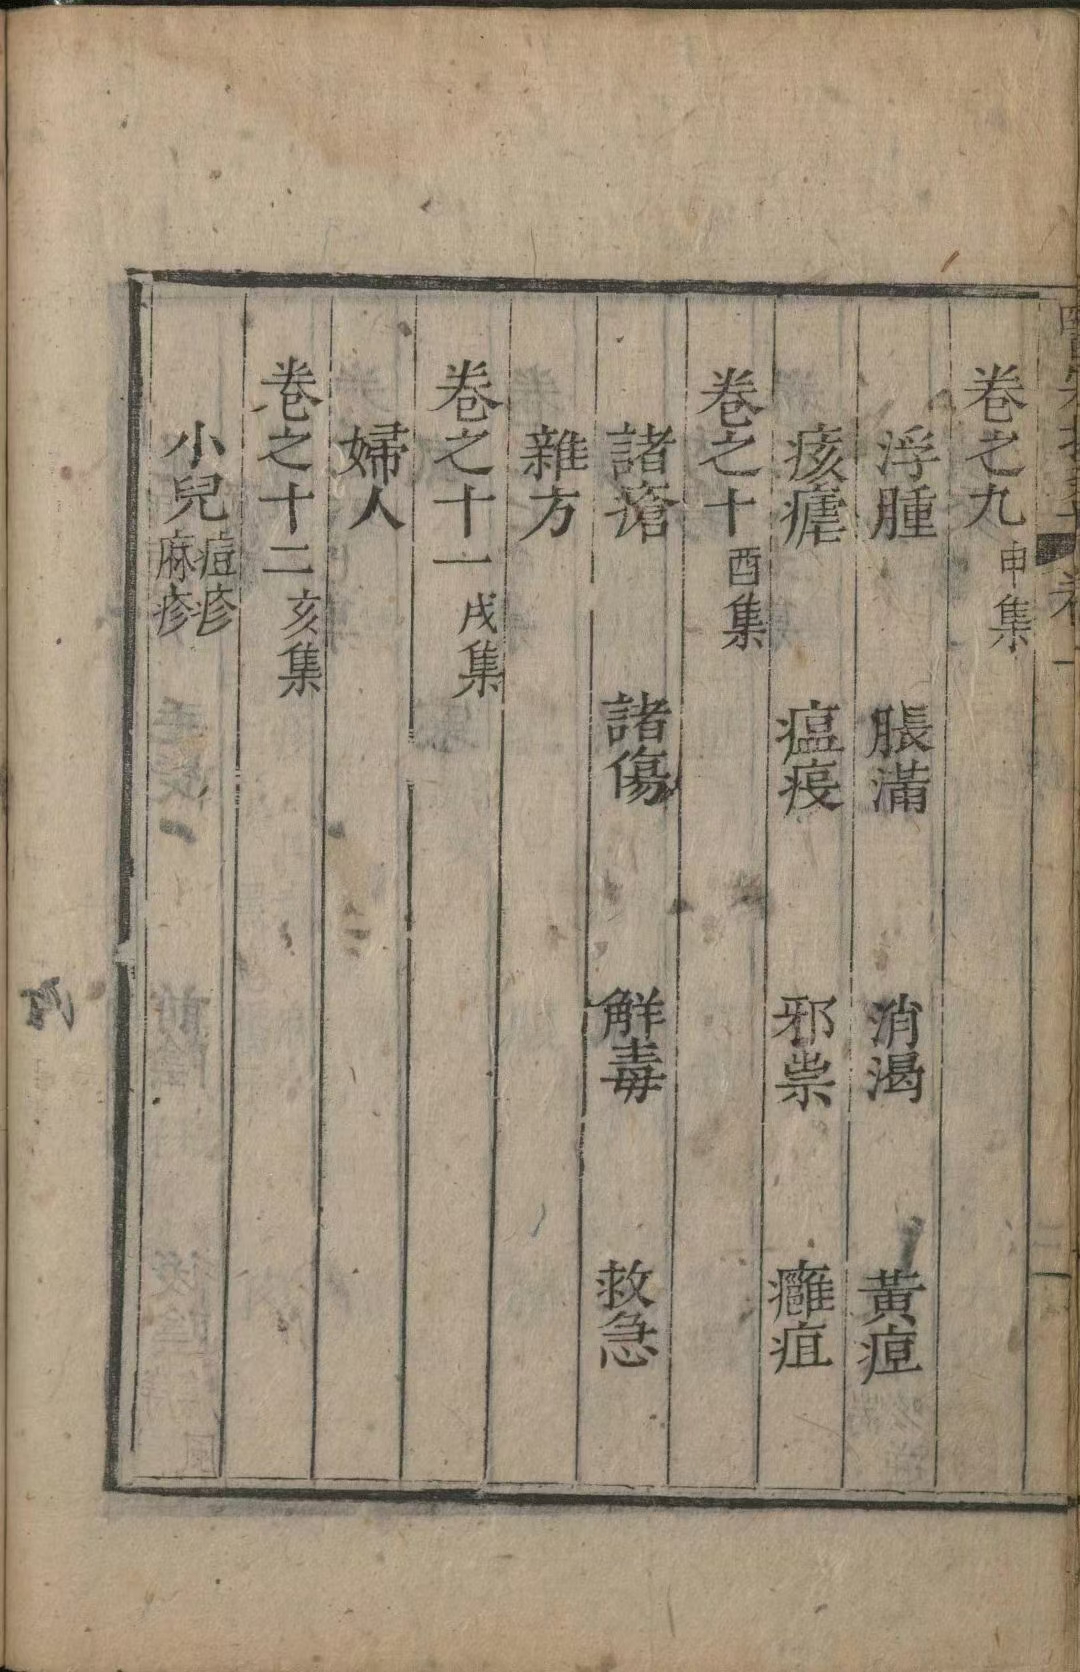 卷之九 申集
浮腫 脹滿 消渴 黃疸
痎瘧 瘟疫 邪祟 癰疽
卷之十 酉集
諸瘡 諸傷 解毒 救急
雜方
卷之十一 戌集
婦人
卷之十二 亥集
小兒 痘疹 麻疹